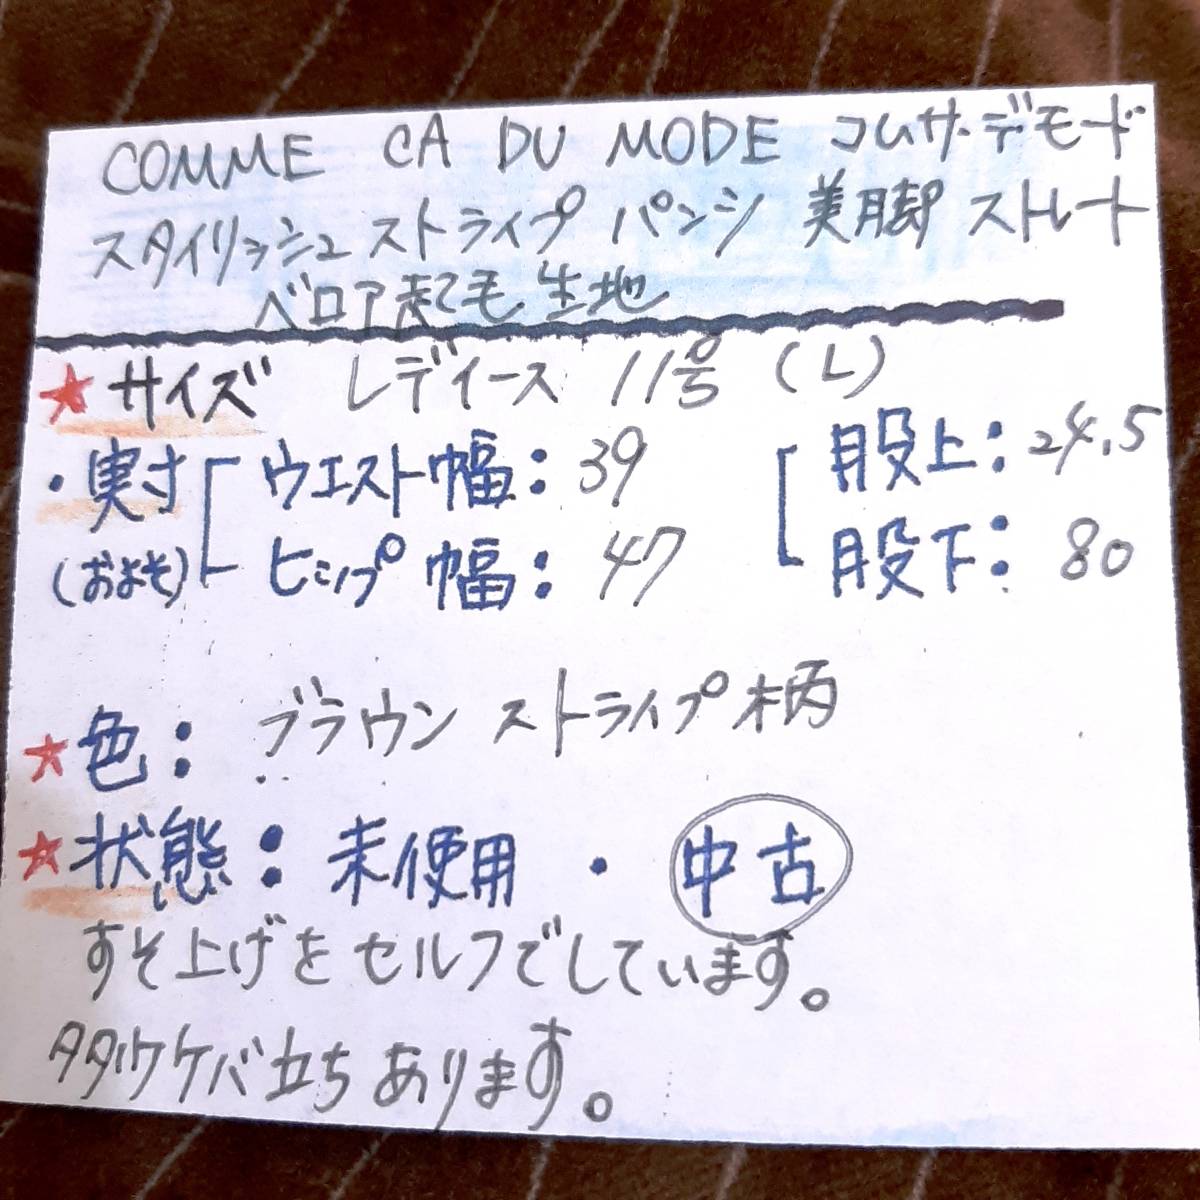 COMME CA DU MODE コムサ・デ・モード
スタイリッシュ ストライプ パンツ 美脚 ストレート
ベロア起毛 生地
★サイズ レディース 11号 (L)
・実寸 ウエスト幅:39 股上:24.5
(およそ) ヒップ幅:47 股下:80
★色:ブラウン ストライプ柄
★状態:未使用・中古
すそ上げをセルフでしています。
ケバ立ちあります。